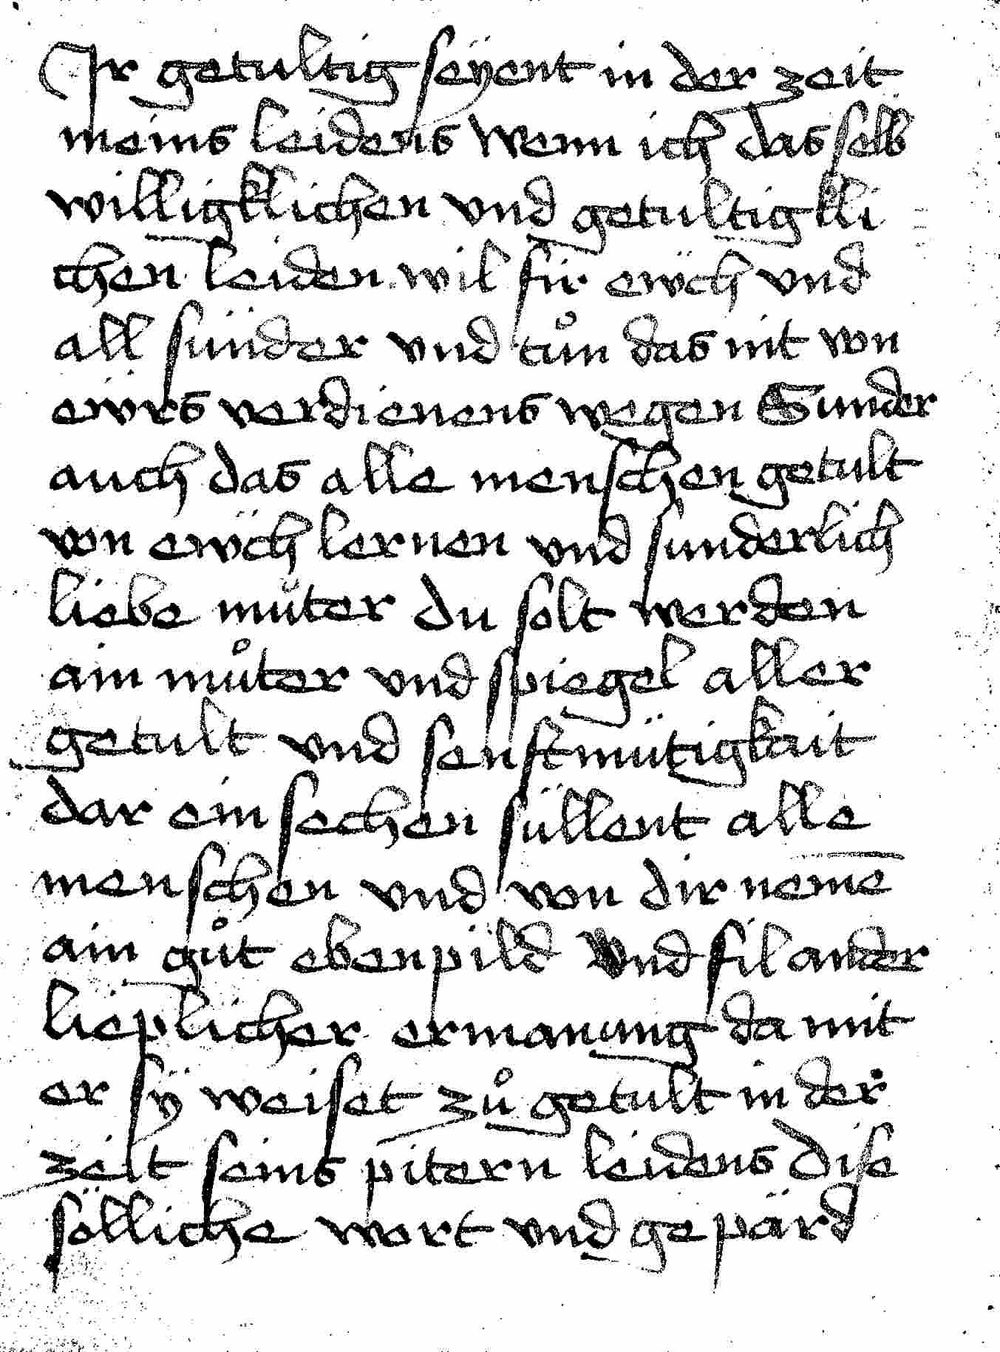 Ir getultig seÿent in der zeit
meins leidens wenn ich das selb
willigklichen vnd getultigkli
chen leiden wil für ewch vnd
all sünder vnd tůn das nit von
ewrs verdienens wegen Sunder
auch das alle menschen getult
von ewch lernen vnd sunderlich
liebe můter du solt werden
ain můter vnd spiegel aller
getult vnd senftmütigkait
dar ein sechen süllent alle
menschen vnd von dir neme
ain gůt ebenpild vnd fil ander
lieplicher ermanung da mit
er sÿ weiset zů getult in der
zeit seins pitern leidens dise
sölliche wort vnd gepärd